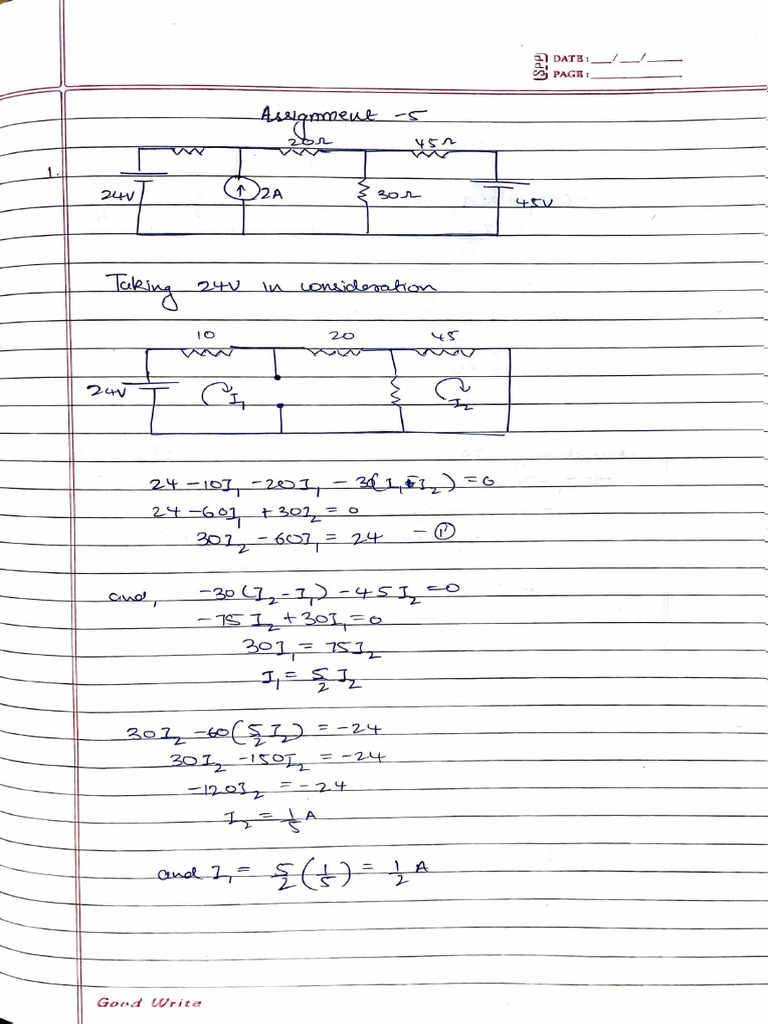 SPP DATE: __/__/____
PAGE: ________
Assignment -5
20Ω 45Ω
1.
24V 2A 30Ω 45V
Taking 24V in consideration
10 20 45
24V I₁ I₂
24 -10I₁ -20I₁ - 30(I₁-I₂) = 0
24 -60I₁ +30I₂ = 0
30I₂ - 60I₁ = 24 - ①
and, -30(I₂-I₁) - 45I₂ = 0
-75I₂ + 30I₁ = 0
30I₁ = 75I₂
I₁ = 5/2 I₂
30I₂ -60(5/2 I₂) = -24
30I₂ -150I₂ = -24
-120I₂ = -24
I₂ = 1/5 A
and I₁ = 5/2 (1/5) = 1/2 A
Good Write